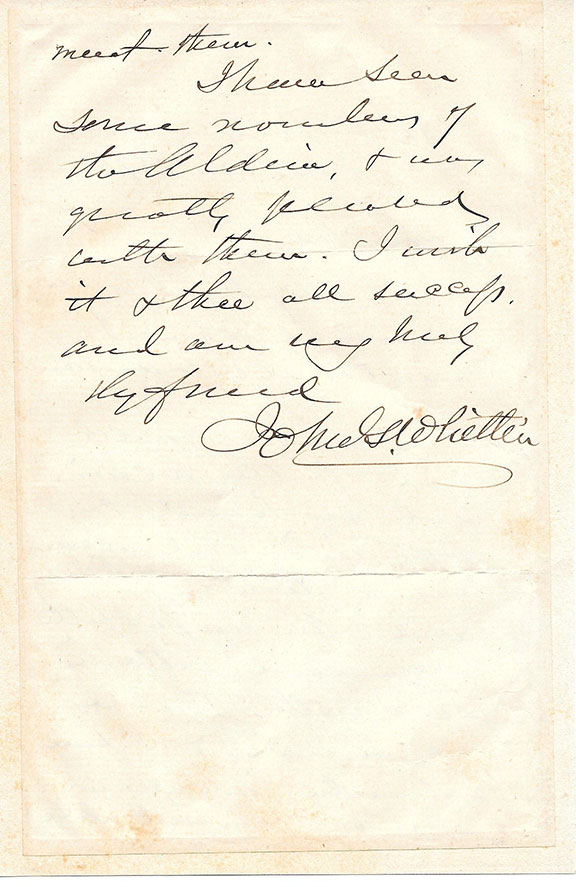 meet them.
I have seen
some numbers of
the Aldine, & was
greatly pleased
with them. I wish
it & thee all success,
and am very truly
thy friend
John G. Whittier